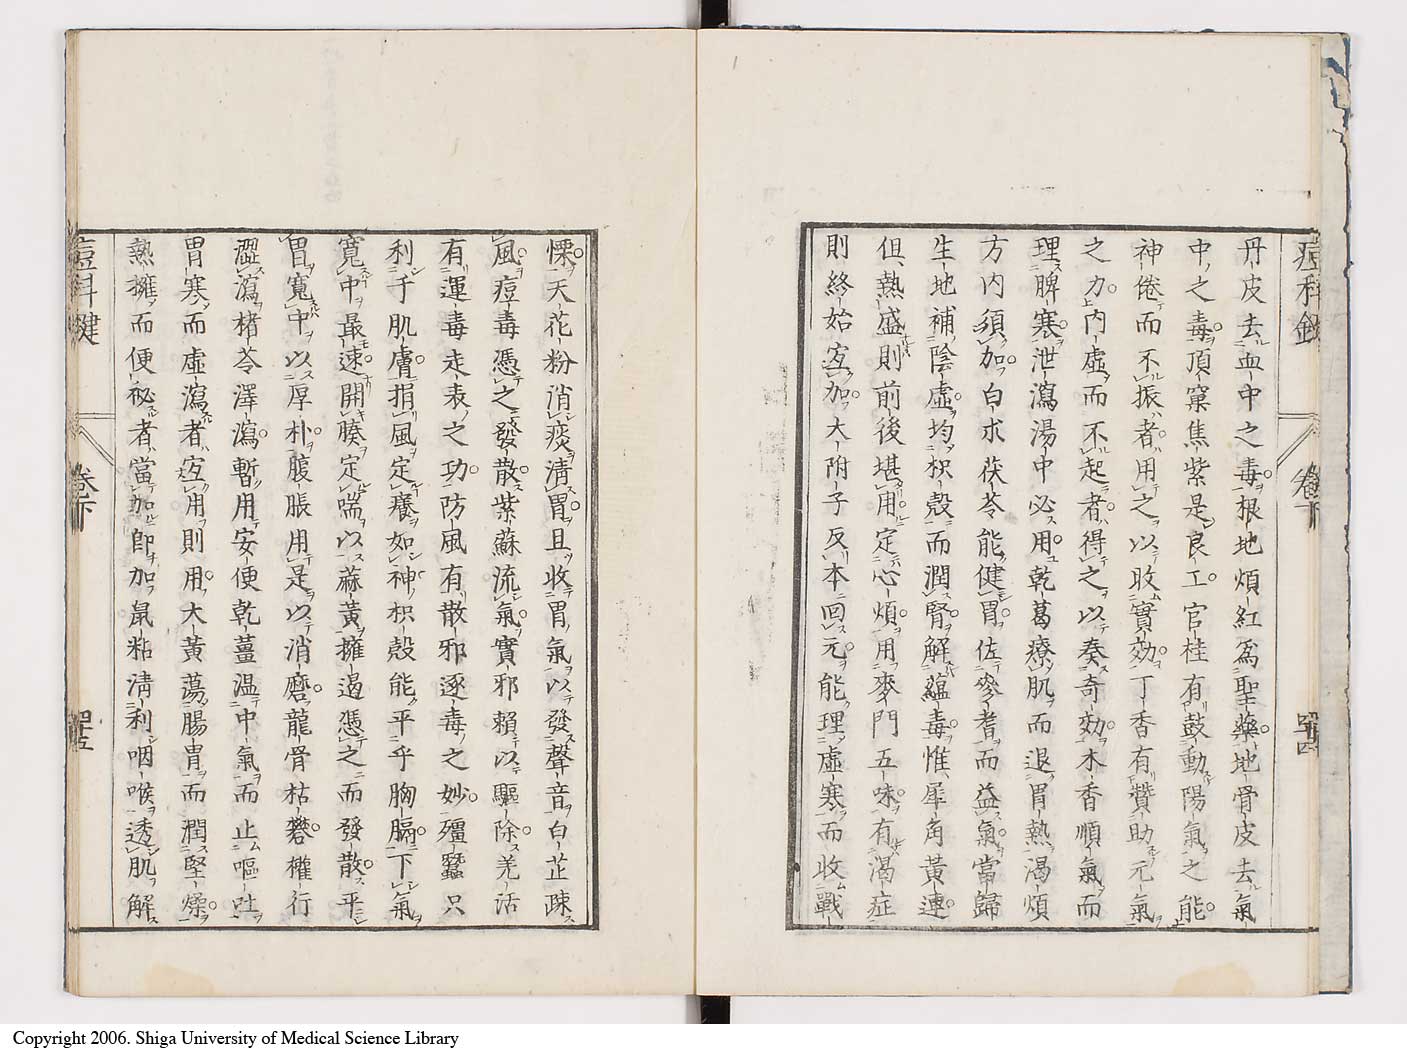 痘科鍵
卷下
四十四
丹皮去血中之毒根地煩紅爲聖藥地骨皮去氣
中之毒頂窠焦紫是良工官桂有鼓動陽氣之能
神倦而不振者用之以收實効丁香有贊助元氣
之力內虛而不起者得之以奏奇効木香順氣而
理脾寒泄瀉湯中必用乾葛療肌而退胃熱渴煩
方內須加白朮茯苓能健胃佐參者而益氣當歸
生地補陰虛均枳殼而潤腎解蘊毒惟犀角黃連
但熱盛則前後堪用定心煩用麥門五味有渴症
則終始宜加大附子反本回元能理虛寒而收戰
慄天花粉消痰淸胃且收胃氣以發聲音白芷疎
風痘毒憑之發散紫蘇流氣實邪賴以驅除羌活
有運毒走表之功防風有散邪逐毒之妙殭蠶只
利于肌膚捐風定癢如神枳殼能平乎胸膈下氣
寬中最速開腠定喘以蔴黃擁遏憑之而發散平
胃寬中以厚朴腹脹用是以消磨龍骨枯礬權行
澀瀉楮苓澤瀉暫用安便乾薑溫中氣而止嘔吐
胃寒而虛瀉者宜用則用大黃蕩腸胃而潤堅燥
熱擁而便秘者當加卽加鼠粘淸利咽喉透肌解
痘科鍵
卷下
四十五
Copyright 2006. Shiga University of Medical Science Library